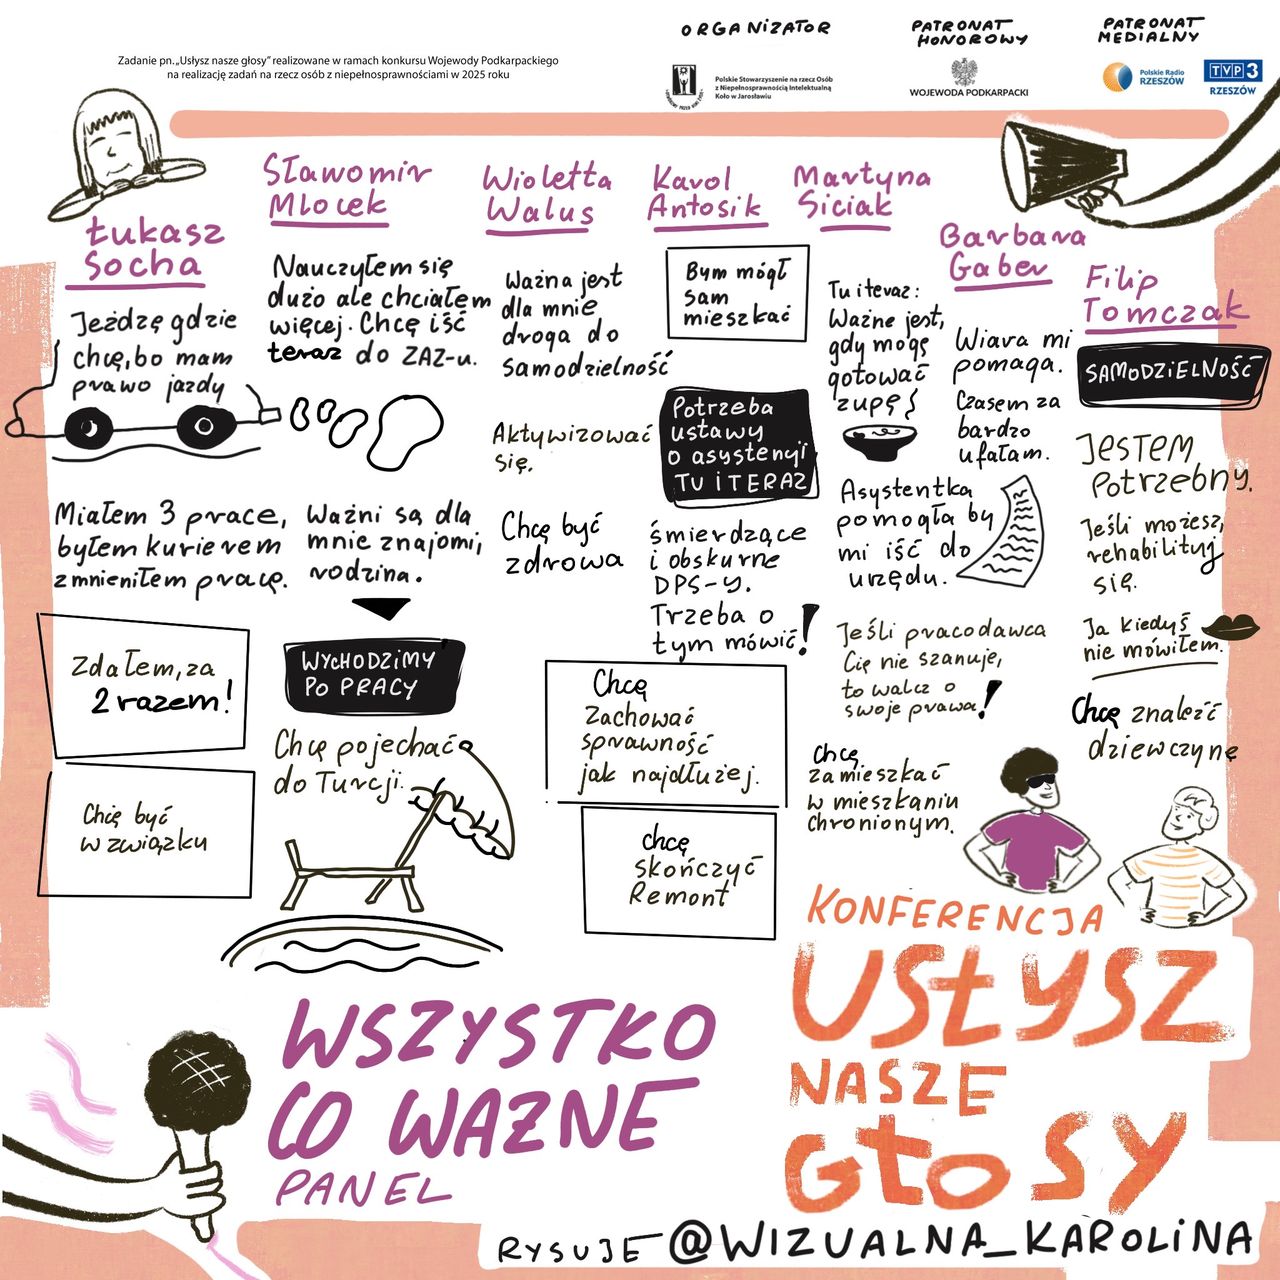 Zadanie pn. „Usłysz nasze głosy” realizowane w ramach konkursu Wojewody Podkarpackiego
na realizację zadań na rzecz osób z niepełnosprawnościami w 2025 roku
ORGANIZATOR
Polskie Stowarzyszenie na rzecz Osób
z Niepełnosprawnością Intelektualną
Koło w Jarosławiu
PATRONAT
HONOROWY
WOJEWODA PODKARPACKI
PATRONAT
MEDIALNY
Polskie Radio
RZESZÓW
TVP3
RZESZÓW
Łukasz
Socha
Jeżdżę gdzie
chcę, bo mam
prawo jazdy
Miałem 3 prace,
byłem kurierem
zmieniłem pracę.
Zdałem, za
2 razem!
Chcę być
w związku
Sławomir
Mlocek
Nauczyłem się
dużo ale chciałem
więcej. Chcę iść
teraz do ZAZ-u.
Ważni są dla
mnie znajomi,
rodzina.
WYCHODZIMY
PO PRACY
Chcę pojechać
do Turcji.
Wioletta
Walus
Ważna jest
dla mnie
droga do
samodzielność
Aktywizować
się.
Chcę być
zdrowa
Chcę
zachować
sprawność
jak najdłużej.
chcę
skończyć
Remont
Karol
Antosik
Bym mógł
sam
mieszkać
Potrzeba
ustawy
o asystenyji
TU i TERAZ
śmierdzące
i obskurne
DPS-y.
Trzeba o
tym mówić!
Martyna
Siciak
Tu i teraz:
Ważne jest,
gdy mogę
gotować
zupę
Asystentka
pomogła by
mi iść do
urzędu.
Jeśli pracodawca
Cię nie szanuje,
to walcz o
swoje prawa!
Chcę
zamieszkać
w mieszkaniu
chronionym.
Barbara
Gaber
Wiara mi
pomaga.
Czasem za
bardzo
ufałam.
Filip
Tomczak
SAMODZIELNOŚĆ
JESTEM
Potrzebny.
Jeśli możesz,
rehabilituj
się.
Ja kiedyś
nie mówiłem.
Chcę znaleźć
dziewczynę
WSZYSTKO
CO WAŻNE
PANEL
KONFERENCJA
USŁYSZ
NASZE
GŁOSY
RYSUJE @WIZUALNA_KAROLINA